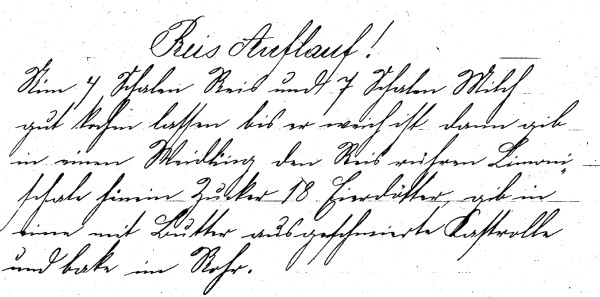 Reis Auflauf!
Nim 4 Schalen Reis und 7 Schalen Milch
gut kochen lassen bis er weich ist dann gib
in einen Weidling den Reis rühren Limoni-
schale hinein Zucker 18 Eierdötter, gib in
eine mit Butter ausgeschmierte Kastrolle
und bake im Rohr.